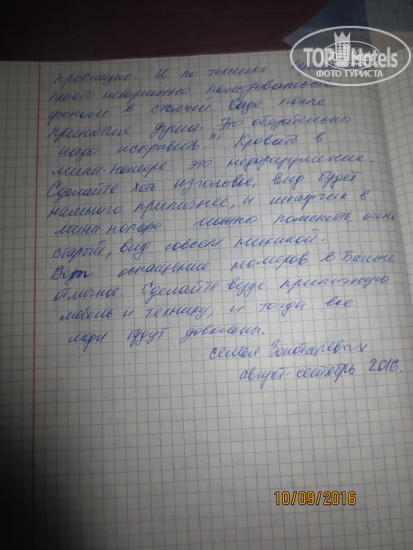 TOPHotels
ФОТО ТУРИСТА
И по технике
просто невозможно пользоваться
феном в стоячей воде после
принятия душа. Это обязательно
надо исправить!!! Кровать в
мини-номере это недоразумение.
Сделайте хоть изголовье, вид будет
намного приличнее, и шкафчик в
мини-номере можно поменять, очень
старый, вид совсем никакой.
Вот оснащение номеров в Башне
отличное. Сделайте везде приличную
мебель и технику, и тогда все
люди будут довольны.
семья Золотаревых
август-сентябрь 2016.
10/09/2016